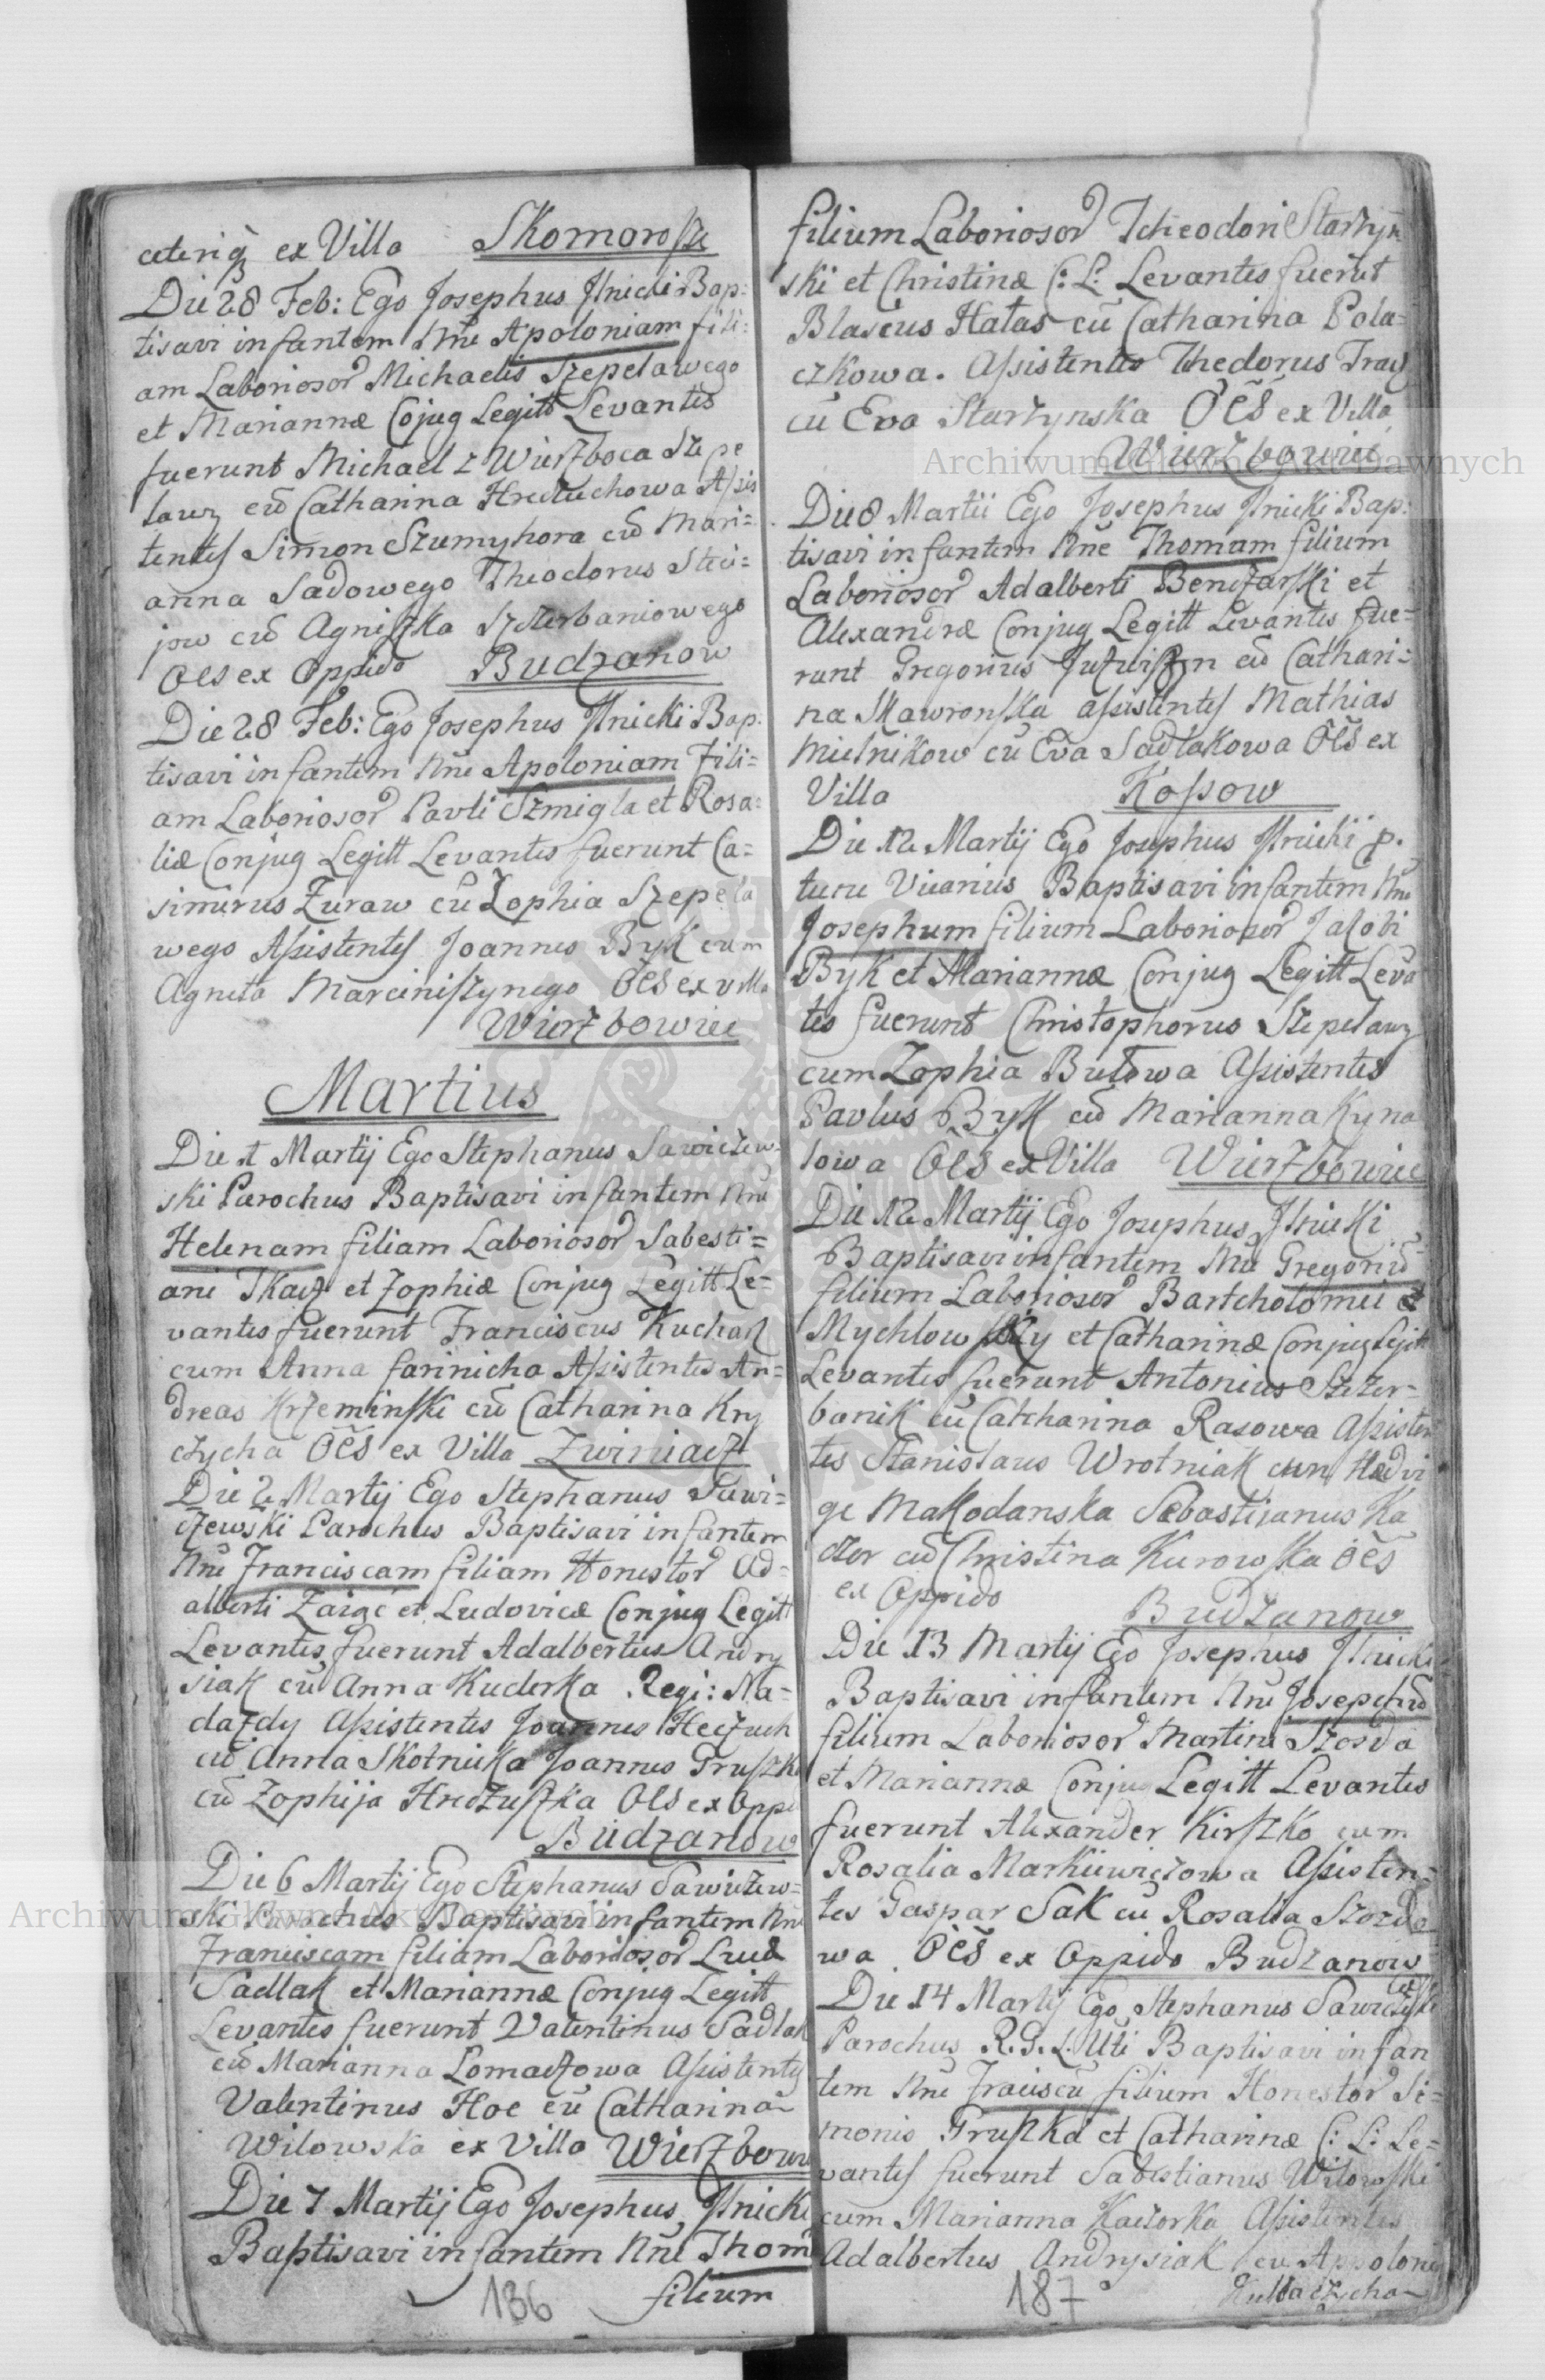 ceteriq ex Villa Skomorosze
Die 28 Feb: Ego Josephus Ilnicki Bap:
tisavi infantem Nne Apoloniam fili:
am Laboriosor Michaelis Szepelawego
et Mariannæ Cojug Legitt Levantes
fuerunt Michael z Wierzboca Szepe
lawy cu Catharina Hreczuchowa Assis
tentes Simon Szumyhora cu Mari=
anna Sadowego Theodorus Steci=
jow cu Agniszka Szczerbaniowego
Oes ex Oppido Budzanow
Die 28 Feb: Ego Josephus Ilnicki Bap:
tisavi infantem Nne Apoloniam Fili=
am Laboriosor Pavli Szmigla et Rosa=
liæ Conjug Legitt Levantes fuerunt Ca=
simirus Zuraw cu Zophia Szepela
wego Assistentes Joannes Byk cum
Agneta Marciniszynego Oes ex villa
Wierzbowiec
Martius
Die 1 Martij Ego Stephanus Sawiczew
ski Parochus Baptisavi infantem Nne
Helenam filiam Laboriosor Sabesti=
ani Tkacz et Zophiæ Conjug Legitt Le=
vantes fuerunt Franciscus Kucharz
cum Anna farinicha Assistentes An=
dreas Krzeminski cu Catharina Kry
czycha Oes ex Villa Zwiniacz
Die 2 Martij Ego Stephanus Sawi=
czewski Parochus Baptisavi infantem
Nne Franciscam filiam Honestor Ad=
alberti Zaiąc et Ludovicæ Conjug Legitt
Levantes fuerunt Adalbertus Andry
siak cu Anna Kuderka Regi: Na=
dazdy Assistentes Joannes Heczuch
cu Anna Skotnicka Joannes Gruszka
cu Zophija Hreczuszka Oes ex Oppi
Budzanow
Die 6 Martij Ego Stephanus Sawiczew=
ski Parochus Baptisavi infantem Nne
Franciscam filiam Laboriosor Lucæ
Sadlak et Mariannæ Conjug Legitt
Levantes fuerunt Valentinus Sadlak
cu Marianna Lomaczowa Assistentes
Valentinus Hoc cu Catharina
Wilowska ex Villa Wierzbowi
Die 7 Martij Ego Josephus Ilnicki
Baptisavi infantem Nne Thom
filium
136
filium Laboriosor Tcheodori Starzyn
ski et Christinæ C: L: Levantes fuerut
Blasius Hałas cu Catharina Pola=
czkowa. Assistentes Thedorus Tracz
cu Eva Starzynska Oes ex Villa
Wierzbowiec
Die 8 Martii Ego Josephus Ilnicki Bap:
tisavi infantem Nne Thomam filium
Laboriosor Adalberti Benczarski et
Alexandræ Conjug Legitt Levantes fue=
runt Gregorius cu Cathari=
na Skawronska assistentes Mathias
Mielnikow cu Eva Sadlakowa Oes ex
Villa Kossow
Die 12 Martij Ego Josephus Ilnickij p.
tunc Vicarius Baptisavi infantem Nne
Josephum filium Laboriosor Jacobi
Byk et Mariannæ Conjug Legitt Leva
tes fuerunt Christophorus Szepelawy
cum Zophia Butowa Assistentes
Pavlus Byk cu Marianna Kyna
lowa Oes ex Villa Wierzbowiec
Die 12 Martij Ego Josephus Ilnicki
Baptisavi infantem Nne Gregoriu
filium Laboriosor Bartcholomei et
Mychlowsky et Catharinæ Conjug Legitt
Levantes fuerunt Antonius Szczer=
banik cu Catcharina Rasowa Assisten
tes Stanislaus Wrotniak cum Hedvi
ge Makodanska Sebastianus Ka
czor cu Christina Kurowska Oes
ex Oppido Budzanow
Die 13 Martij Ego Josephus Ilnicki
Baptisavi infantem Nne Josepchu
filium Laboriosor Martini Szosda
et Mariannæ Conjug Legitt Levantes
fuerunt Alexander Kirszko cum
Rosalia Markiewiczowa Assisten=
tes Gaspar Sak cu Rosalia Szozda
wa Oes ex Oppido Budzanow
Die 14 Martij Ego Stephanus Sawiczewski
Parochus R. G. L. Uti Baptisavi infan
tem Nne Franciscu filium Honestor Si=
monis Gruszka et Catharinæ C: L: Le=
vantes fuerunt Sabestianus Wilowski
cum Marianna Kaczorka Assistentes
Adalbertus Andrysiak cu Apolonia
187
Archiwum Główne Akt Dawnych
Archiwum Główne Akt Dawnych